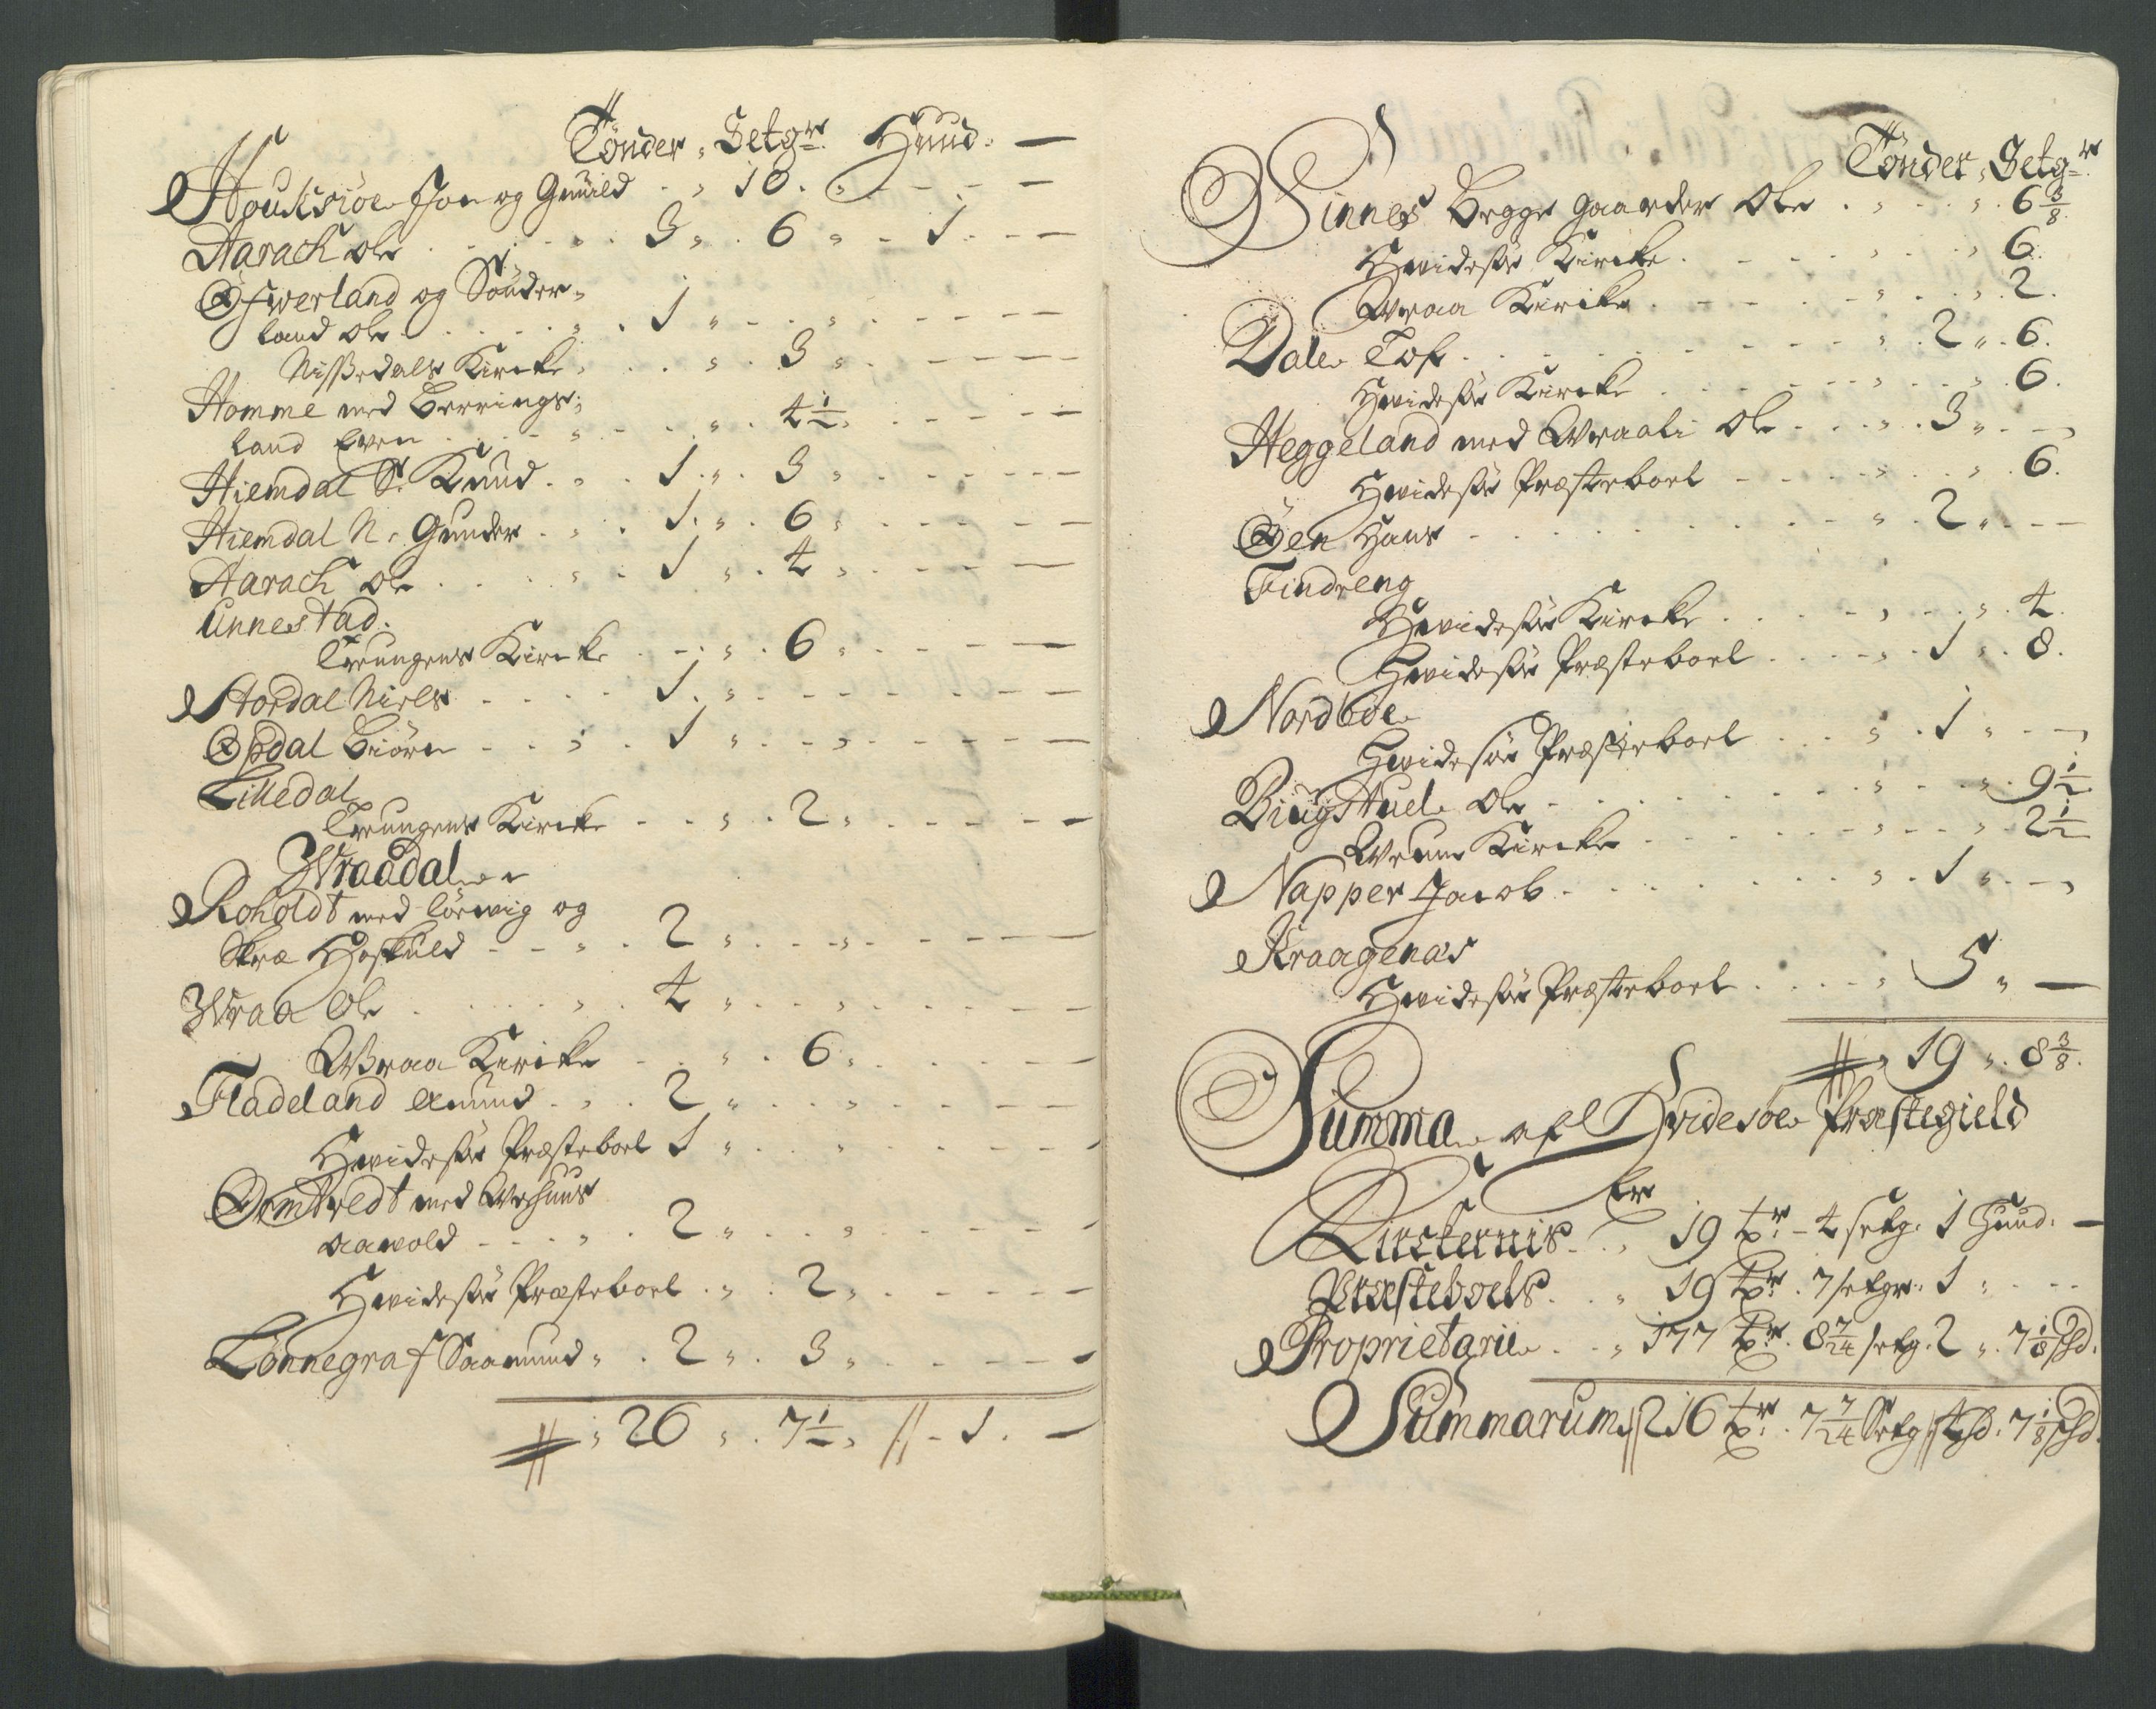 Tönder, Setgr. Huud.
Houksiöe Jon og Gunild 10.
Aarach Ole 3 6 1
Öfwerland og Sönder-
land Ole 1
Nissedals Kircke 3
Homme med Berrings-
land Even 4½
Hiemdal S. Knud 1 3
Hiemdal N. Gunder 1 6
Aarach Ole 1 4
Unnestad.
Treungens Kircke 6
Stordal Niels 1
Opdal Biörn 1
Lilledal
Treungens Kircke 2
Wraadal
Roholdt med Lörvig og
Skræ Hoskuld 2
Wraa Ole 4
Wraa Kircke 6
Fladeland Amund 2
Hvidesöe Præsteboel 1
Ormtvedt med
Aavold 2
Hvidesöe Præsteboel 2
Lönnegraf Saamund 2 3
26 7½ 1
Tönder, Setgr.
Sinnes begge gaarder Ole 6 3/8
Hvidesöe Kircke 6.
Wraa Kircke 2.
Dale Tof 2 6.
Hvidesöe Kircke 6.
Heggeland med Wraali Ole 3
Hvidesöe Præsteboel 6.
Öen Hans 2
Findreng
Hvidesöe Kircke 4.
Hvidesöe Præsteboel 1 8.
Nordböe
Hvidesöe Præsteboel 1
Biugstuel Ole 9½
Kircke 2½
Napper Jacob 1
Kraagenæs
Hvidesöe Præsteboel 5
19 8 3/8.
Summa af Hvidesöe Præstegield
Kirckernis 19 tr. 4 setg. 1 Huud.
Præsteboels 19 tr. 7 setgr. 1
Proprietarie 177 tr. 8 7/24 setg. 2 7 1/8 Sd.
Summarum 216 tr. 7 7/24 Setg 4 hd. 7 1/8 Sd.